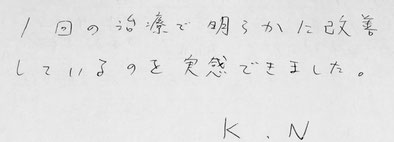 1回の治療で明らかに改善
しているのを実感できました。
K.N